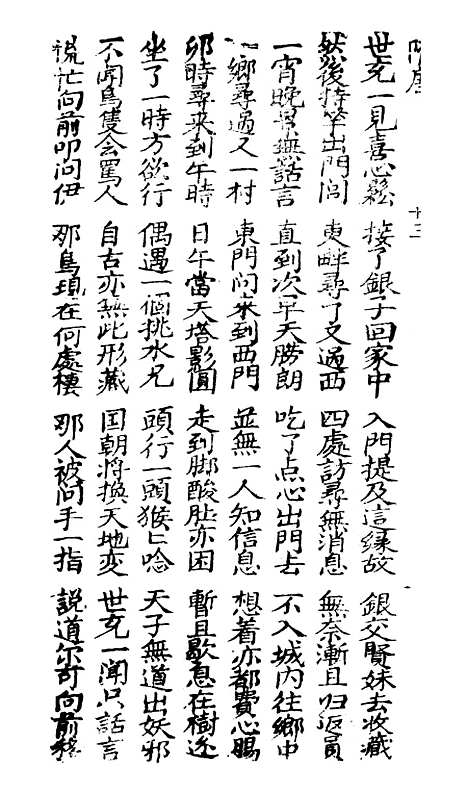 隋唐
十三
世充一見喜心鬆 接了銀子回家中 入門提及這緣故 銀交賢妹去收藏
然後持竿出門 東畔尋了又過西 四處訪尋無消息 無奈漸且归返員
一宵晚景無話言 直到次早天勝朗 吃了点心出門去 不入城內往鄉中
一鄉尋過又一村 東門问來到西門 並無一人知信息 想着亦都費心腸
卯時尋来到午時 日午當天塔影圓 走到脚酸肚亦困 暫且歇息在樹边
坐了一時方欲行 偶遇一個挑水兄 頭行一頭猴匕唸 天子無道出妖邪
不聞鳥隻会罵人 自古亦無此形藏 国朝將換天地变 世充一聞只話言
慌忙向前叩问伊 那鳥現在何處棲 那人被问手一指 説道尔可向前移